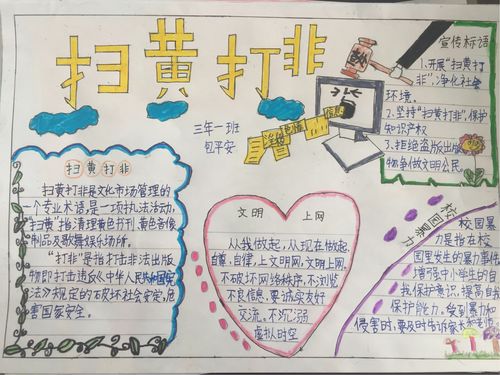 扫黄打非
三年一班
包平安
宣传标语
1、开展“扫黄打
非”,净化社会
环境。
2.坚持“扫黄打非”,保护
知识产权
3、拒绝盗版出版
物争做文明公民。
扫黄打非
扫黄打非是文化市场管理的
一个专业术语,是一项执法活动,
“扫黄”指清理黄色书刊、黄色音像
制品及歌舞娱乐场所。
“打非”是指打击非法出版
物即打击违反《中华人民共和国宪
法》规定的破坏社会安定,危
害国家安全。
文明 上网
从我做起,从现在做起,
自尊、自律,上文明网,文明上网,
不破坏网络秩序,不浏览
不良信息,要诚实友好
交流,不沉溺
虚拟时空
校园暴力
校园暴
力是指在校
园里发生的暴力事件
增强中小学生的自
我保护意识,提高自我
保护能力。做到暴力和
侵害时,要及时告诉家长和老师